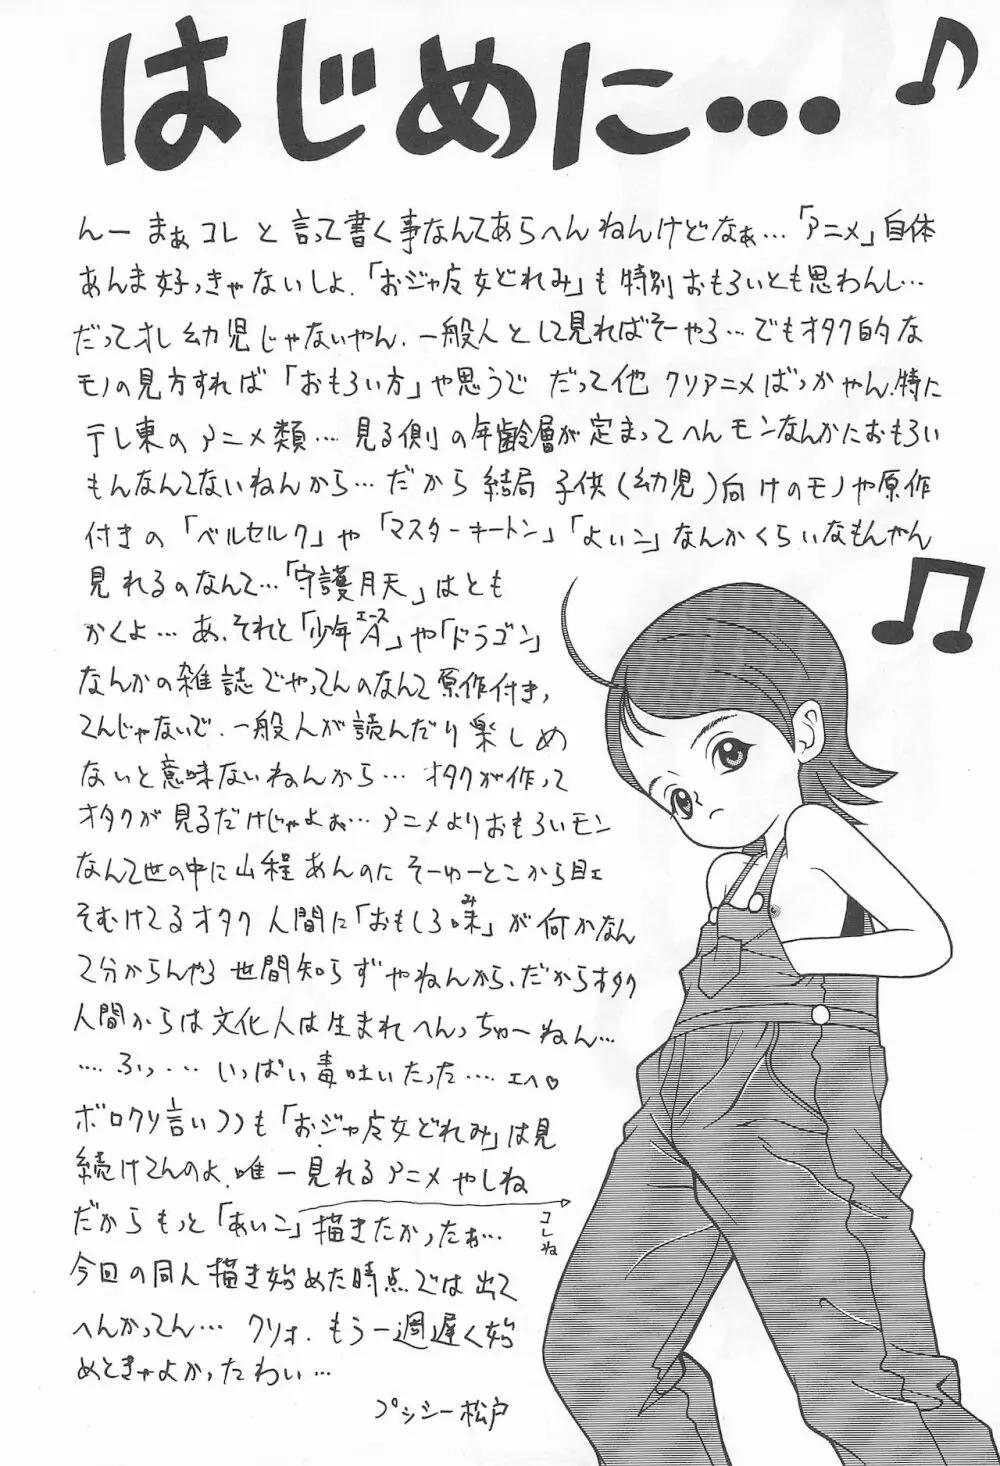 はじめに…
んー まぁ コレ と 言って書く事なんてあらへんねんけどなぁ…「アニメ」自体
あんま好っきゃないしよ.「おジャ魔女どれみ」も 特別 おもろいとも思わんし…
だってオレ 幼児じゃないやん. 一般人として見ればそーやろ…でもオタク的な
モノの見方すれば「おもろい方」や思うで だって他 クソアニメばっかやん.特に
テレ東の アニメ類… 見る側の年齢層が 定まってへんモンなんかにおもろい
もんなんてないねんから…だから 結局 子供(幼児)向けのモノや原作
付きの「ベルセルク」や「マスターキートン」「よいこ」なんかくらいなもんやん
見れるのなんて…「守護月天」はとも
かくよ… あ、それと「少年エース」や「ドラゴン」
なんかの雑誌でやってんのなんて 原作付き,
てんじゃないで. 一般人が読んだり楽しめ
ないと意味ないねんから… オタクが作って
オタクが見るだけじゃよぉ… アニメよりおもろいモン
なんて世の中に山程あんのに そーゆーとこから目ェ
そむけてるオタク人間に「おもしろ味」が何かなん
て分からんやろ 世間知らずやねんから、だからオタク
人間からは 文化人は生まれへんっちゅーねん…
…ふっ… いっぱい毒吐いたった… エヘ♡
ボロクソ言いつつも「おジャ魔女どれみ」は見
続けてんのよ. 唯一見れるアニメやしね
だから もっと「あいこ」描きたかったぉ…
コレね
今回の同人描き始めた時点では出て
へんかってん… クソォ. もう一週遅く始
めときゃよかったわい…
プシシー松戸